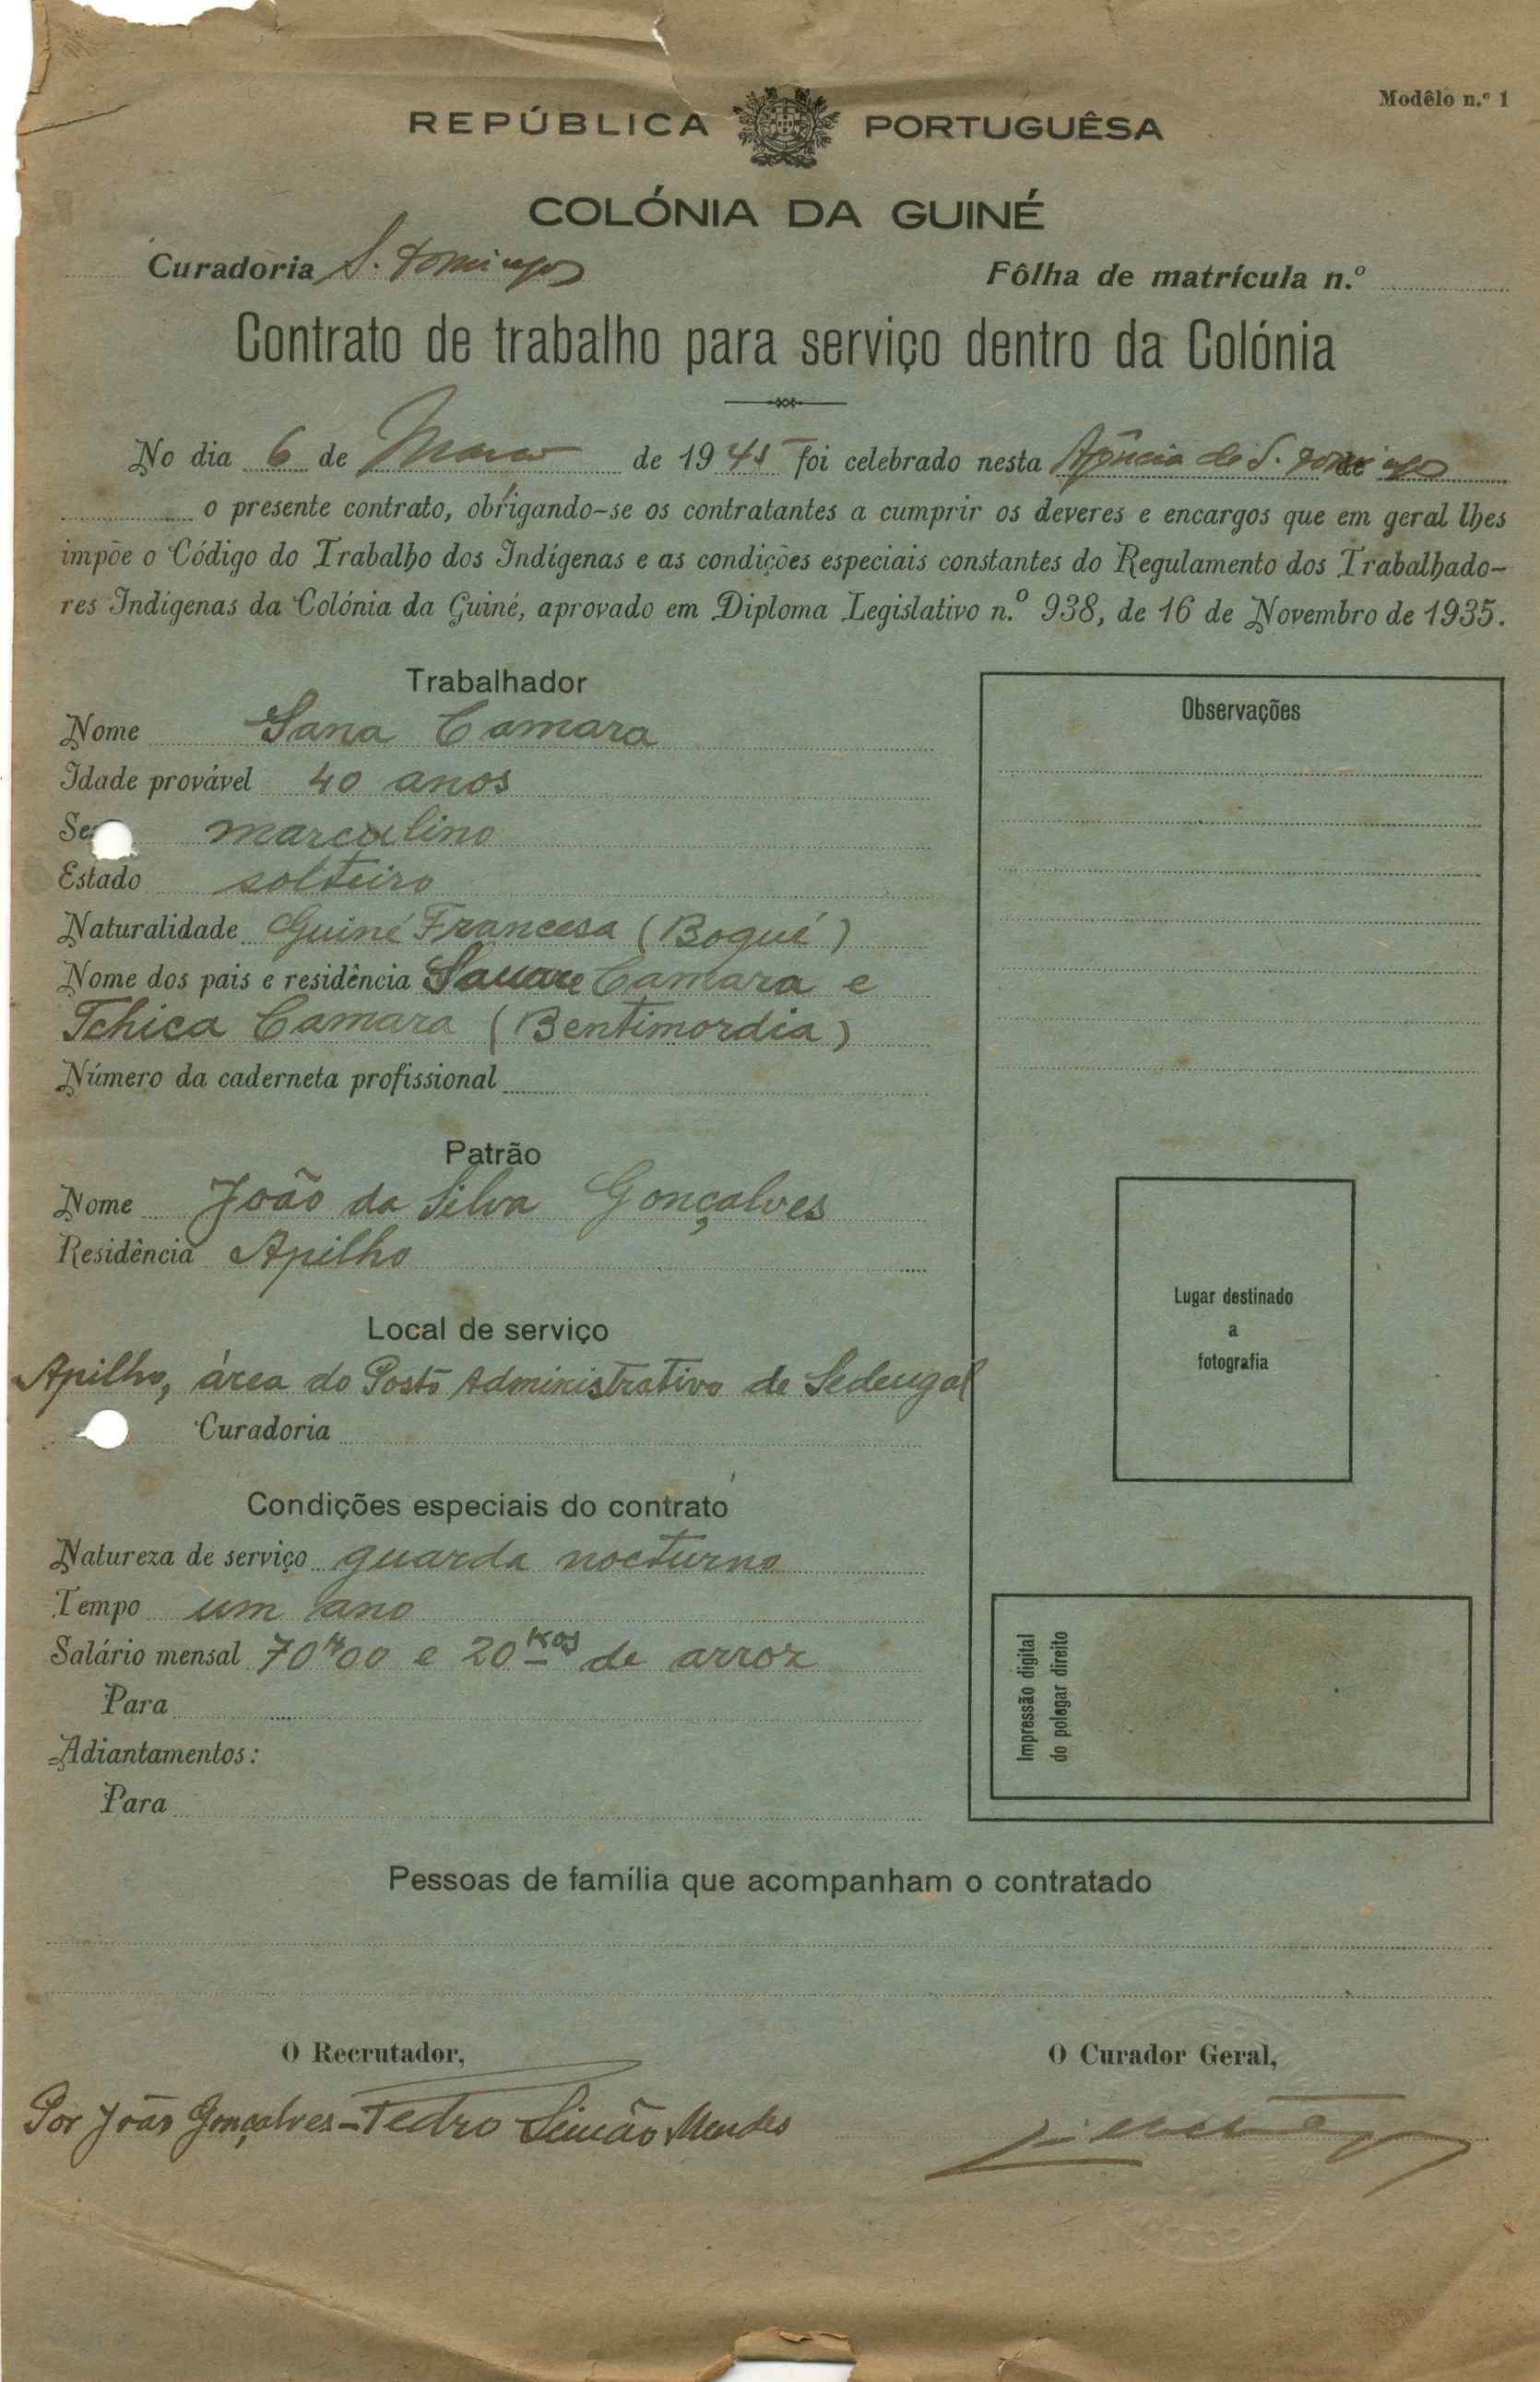 Modêlo n.º 1
REPÚBLICA PORTUGUÊSA
COLÓNIA DA GUINÉ
Curadoria S. Domingos Fôlha de matrícula n.º
Contrato de trabalho para serviço dentro da Colónia
No dia 6 de de 1945 foi celebrado nesta Agência de S. Domingos
o presente contrato, obrigando-se os contratantes a cumprir os deveres e encargos que em geral lhes
impõe o Código do Trabalho dos Indígenas e as condições especiais constantes do Regulamento dos Trabalhado-
res Indígenas da Colónia da Guiné, aprovado em Diploma Legislativo n.º 938, de 16 de Novembro de 1935.
Trabalhador
Nome Sana Camara
Idade provável 40 anos
Se masculino
Estado solteiro
Naturalidade Guiné Francesa (Boqué)
Nome dos pais e residência Camara e
Tchica Camara (Bentimordia)
Número da caderneta profissional
Patrão
Nome João da Silva Gonçalves
Residência Apilho
Local de serviço
Apilho, área do Posto Administrativo de Sedengal
Curadoria
Condições especiais do contrato
Natureza de serviço guarda nocturno
Tempo um ano
Salário mensal 70$00 e 20 Kos de arroz
Para
Adiantamentos:
Para
Observações
Lugar destinado
a
fotografia
Impressão digital
do polegar direito
Pessoas de família que acompanham o contratado
O Recrutador,
Por João Gonçalves - Pedro Simão Mendes
O Curador Geral,